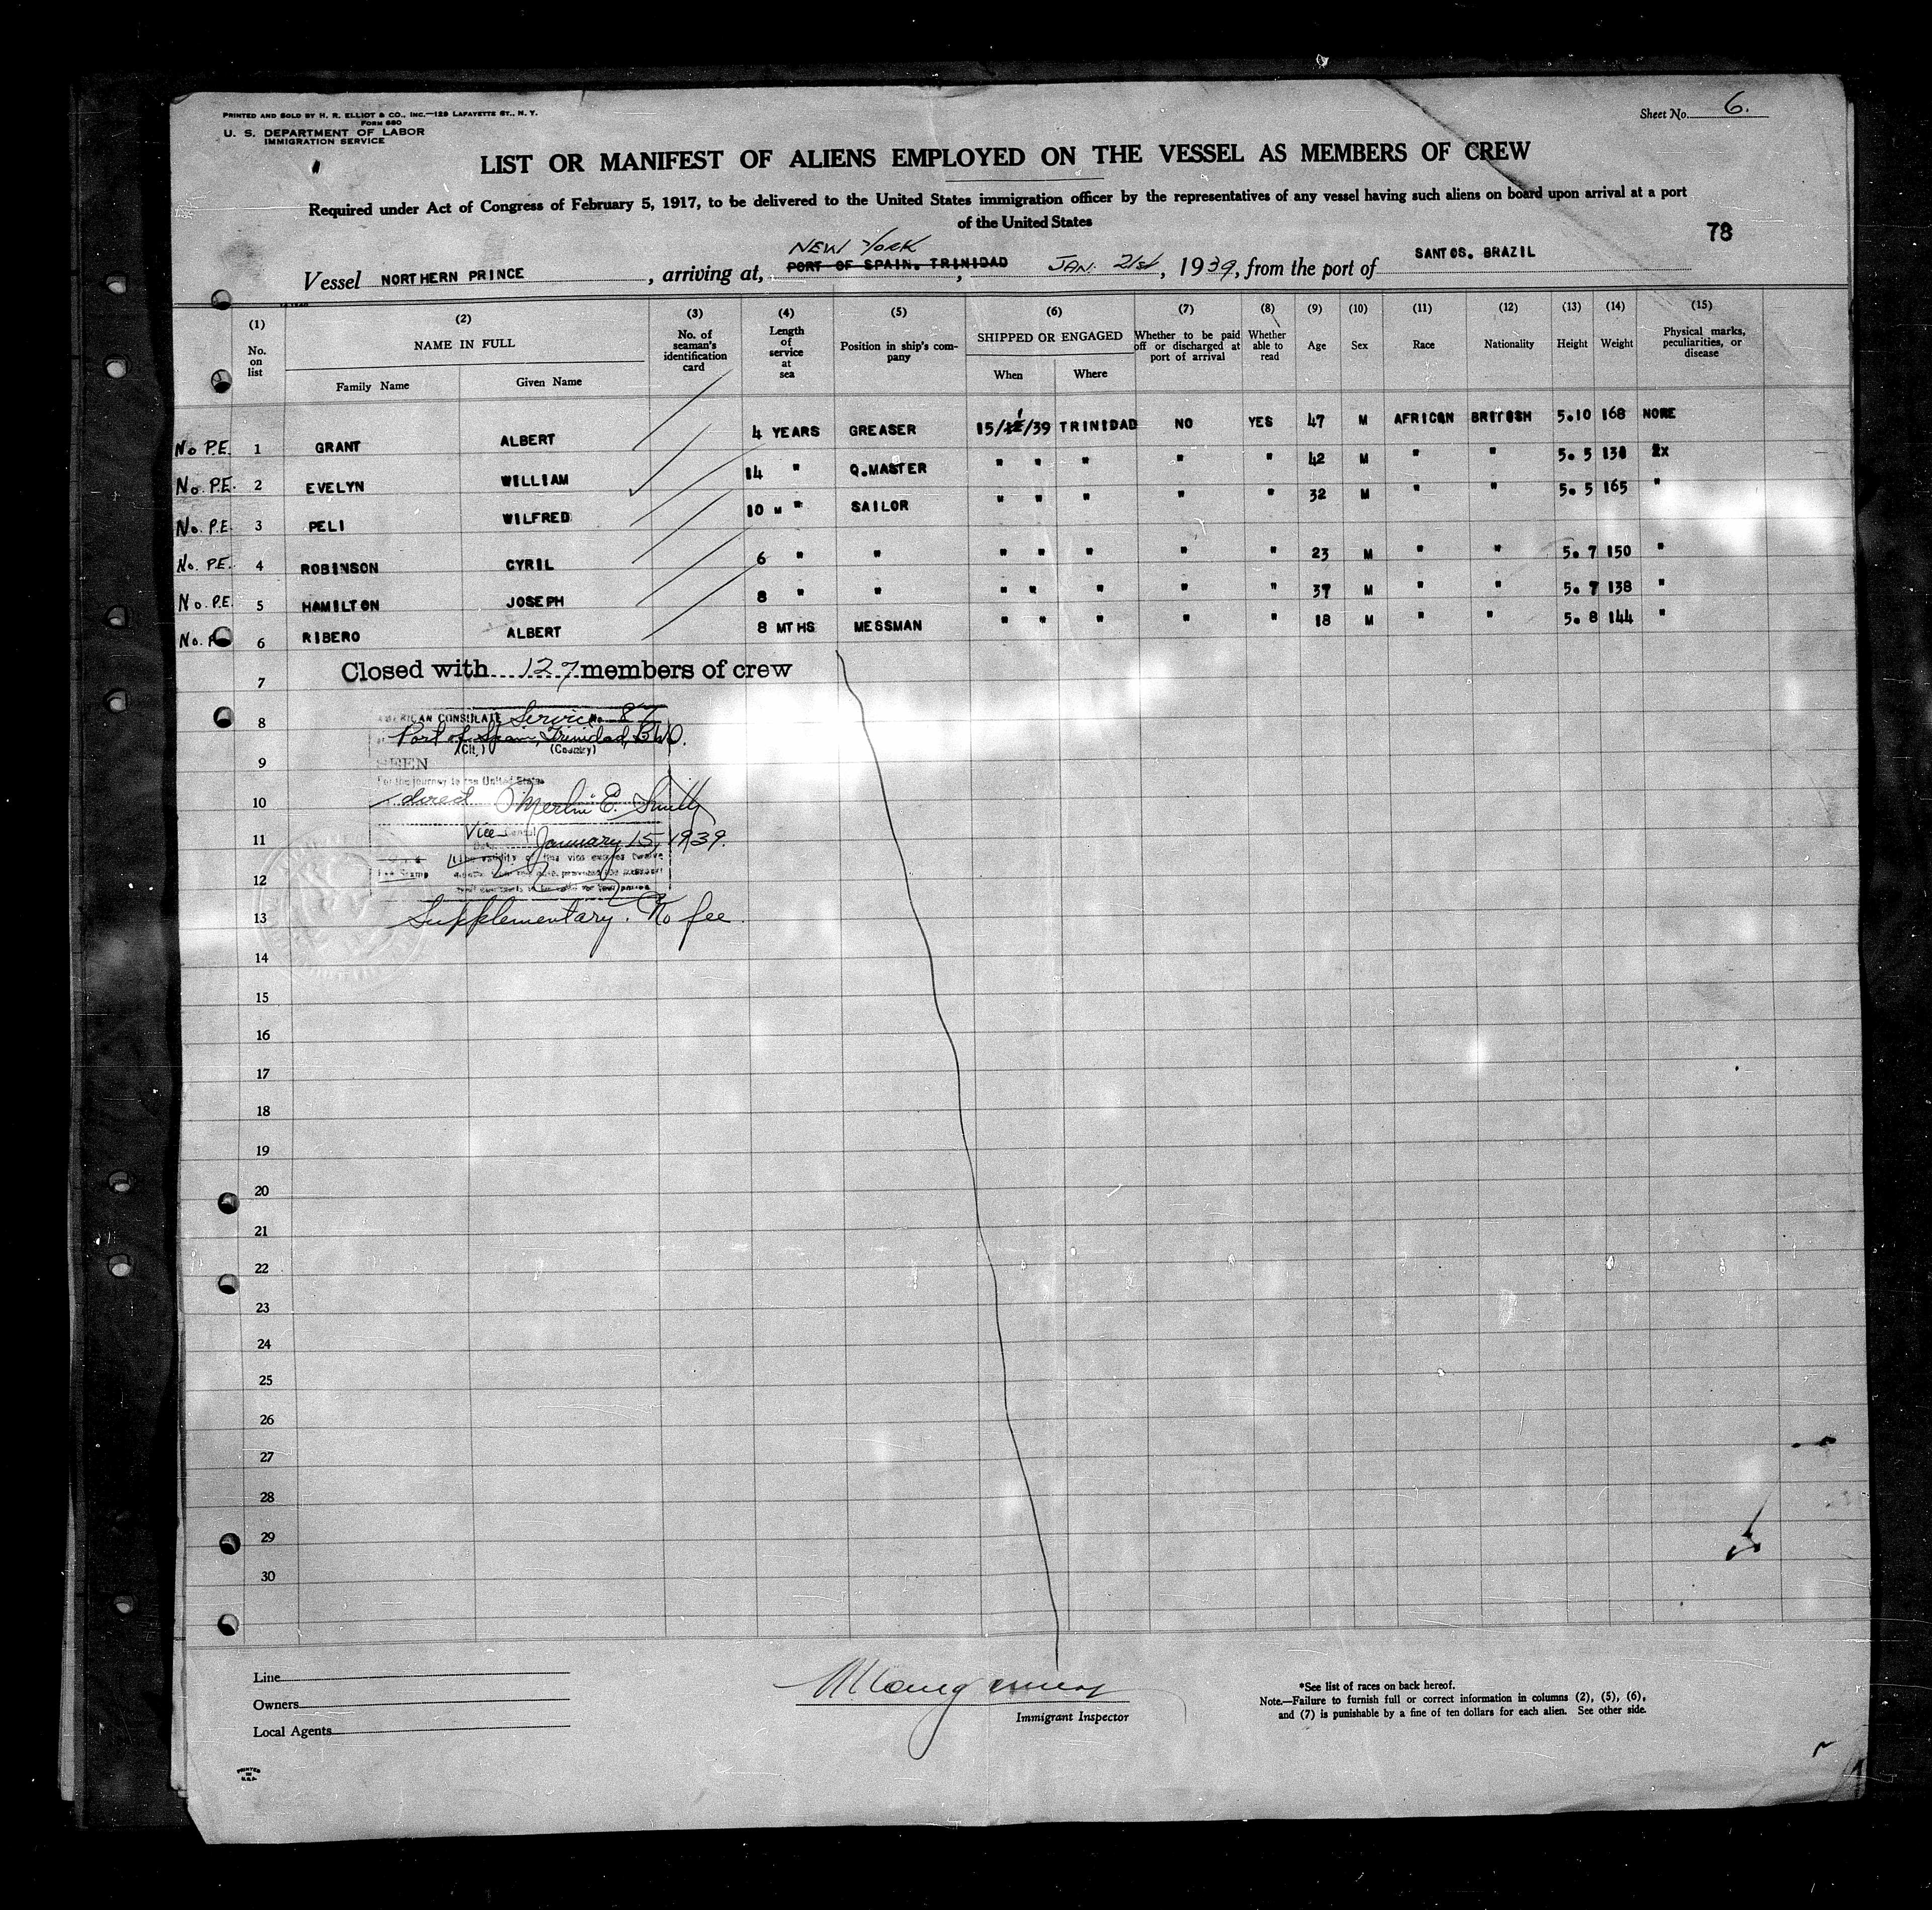 PRINTED AND SOLD BY H. R. ELLIOT & CO., INC.—129 LAFAYETTE ST., N. Y.
FORM 680
U. S. DEPARTMENT OF LABOR
IMMIGRATION SERVICE
Sheet No. 6.
LIST OR MANIFEST OF ALIENS EMPLOYED ON THE VESSEL AS MEMBERS OF CREW
Required under Act of Congress of February 5, 1917, to be delivered to the United States immigration officer by the representatives of any vessel having such aliens on board upon arrival at a port
of the United States
78
NEW YORK
Vessel NORTHERN PRINCE, arriving at, PORT OF SPAIN. TRINIDAD, JAN. 21st, 1939, from the port of SANTOS. BRAZIL
(1) (2) (3) (4) (5) (6) (7) (8) (9) (10) (11) (12) (13) (14) (15)
No. on list NAME IN FULL No. of seaman's identification card Length of service at sea Position in ship's company SHIPPED OR ENGAGED Whether to be paid off or discharged at port of arrival Whether able to read Age Sex Race Nationality Height Weight Physical marks, peculiarities, or disease
Family Name Given Name When Where
No P.E. 1 GRANT ALBERT 4 YEARS GREASER 15/1/39 TRINIDAD NO YES 47 M AFRICAN BRITISH 5.10 168 NONE
No. P.E. 2 EVELYN WILLIAM 14 " Q.MASTER " " " " " 42 M " " 5. 5 130
No. P.E. 3 PELI WILFRED 10 M " SAILOR " " " " " 32 M " " 5. 5 165 "
No. P.E. 4 ROBINSON CYRIL 6 " " " " " " " 23 M " " 5. 7 150 "
No. P.E. 5 HAMILTON JOSEPH 8 " " " " " " " 37 M " " 5. 7 138 "
No. P 6 RIBERO ALBERT 8 MTHS MESSMAN " " " " " 18 M " " 5. 8 144 "
Closed with 127 members of crew
7
8
AMERICAN CONSULATE Service No. 87
Port of Spain, Trinidad, B.W.I.
(City) (Country)
9
SEEN
For the journey to the United States
10
direct Merlin E. Smith
Vice Consul
11
Date January 15, 1939.
The validity of this visa expires twelve
Fee Stamp
12
13
Supplementary. No fee.
14
15
16
17
18
19
20
21
22
23
24
25
26
27
28
29
30
Line
Owners
Local Agents
Immigrant Inspector
*See list of races on back hereof.
Note.—Failure to furnish full or correct information in columns (2), (5), (6),
and (7) is punishable by a fine of ten dollars for each alien. See other side.
PRINTED
IN
U.S.A.